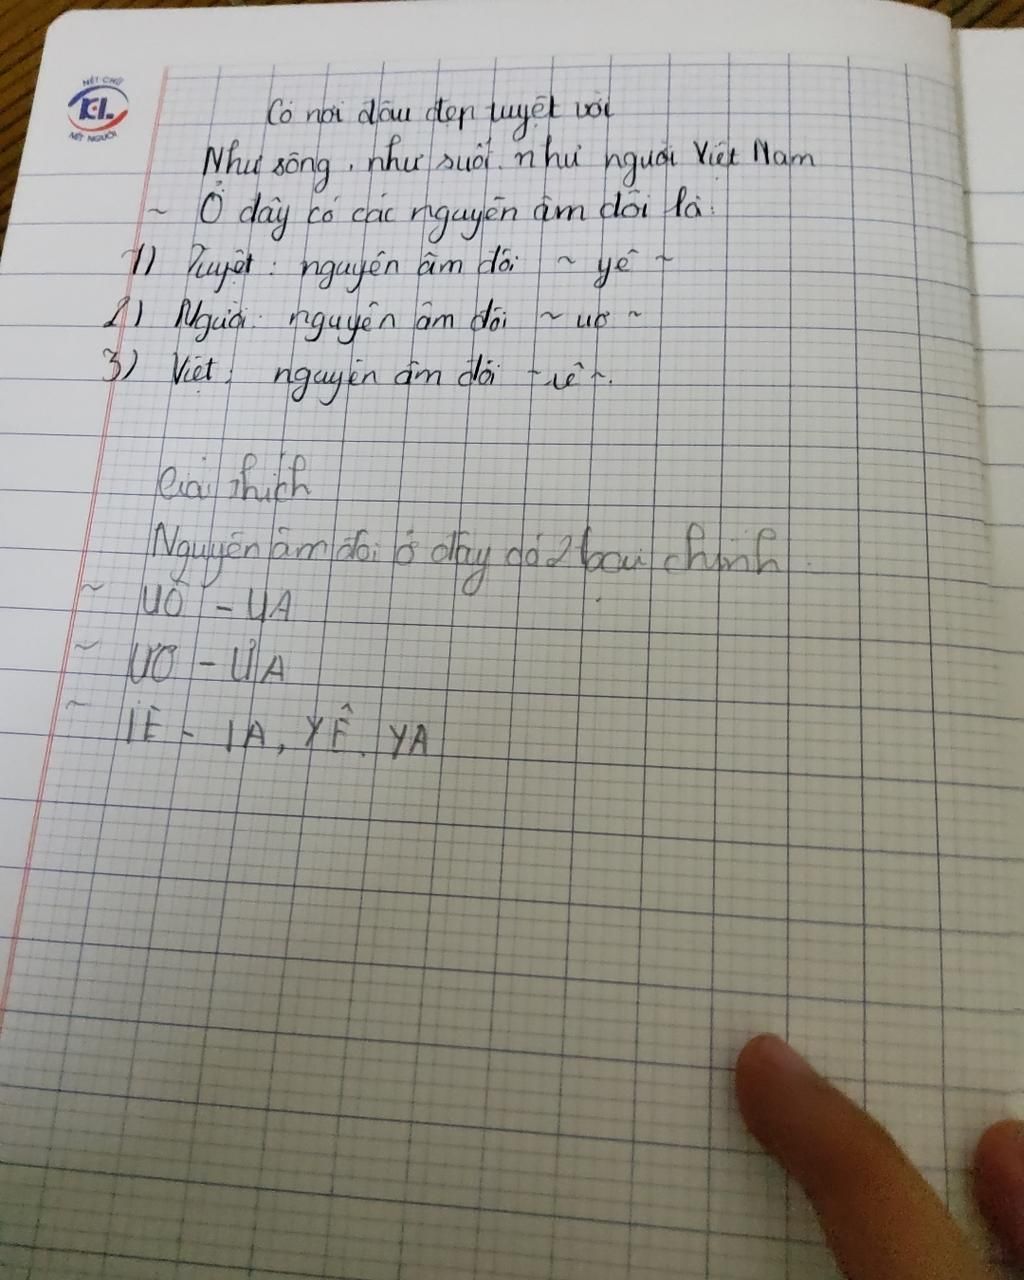 NÉT CHỮ
K·L
NẾT NGƯỜI
Có nơi đâu đẹp tuyệt vời
Như sông, như suối như người Việt Nam
~ Ở đây có các nguyên âm đôi là:
1) Tuyệt: nguyên âm đôi ~ yê ~
2) Người: nguyên âm đôi ~ ươ ~
3) Việt: nguyên âm đôi ~ iê ~.
Giải thích
Nguyên âm đôi ở đây có 2 chính
~ UÔ - UA
~ ƯƠ - ƯA
~ IÊ - IA, YÊ. YA